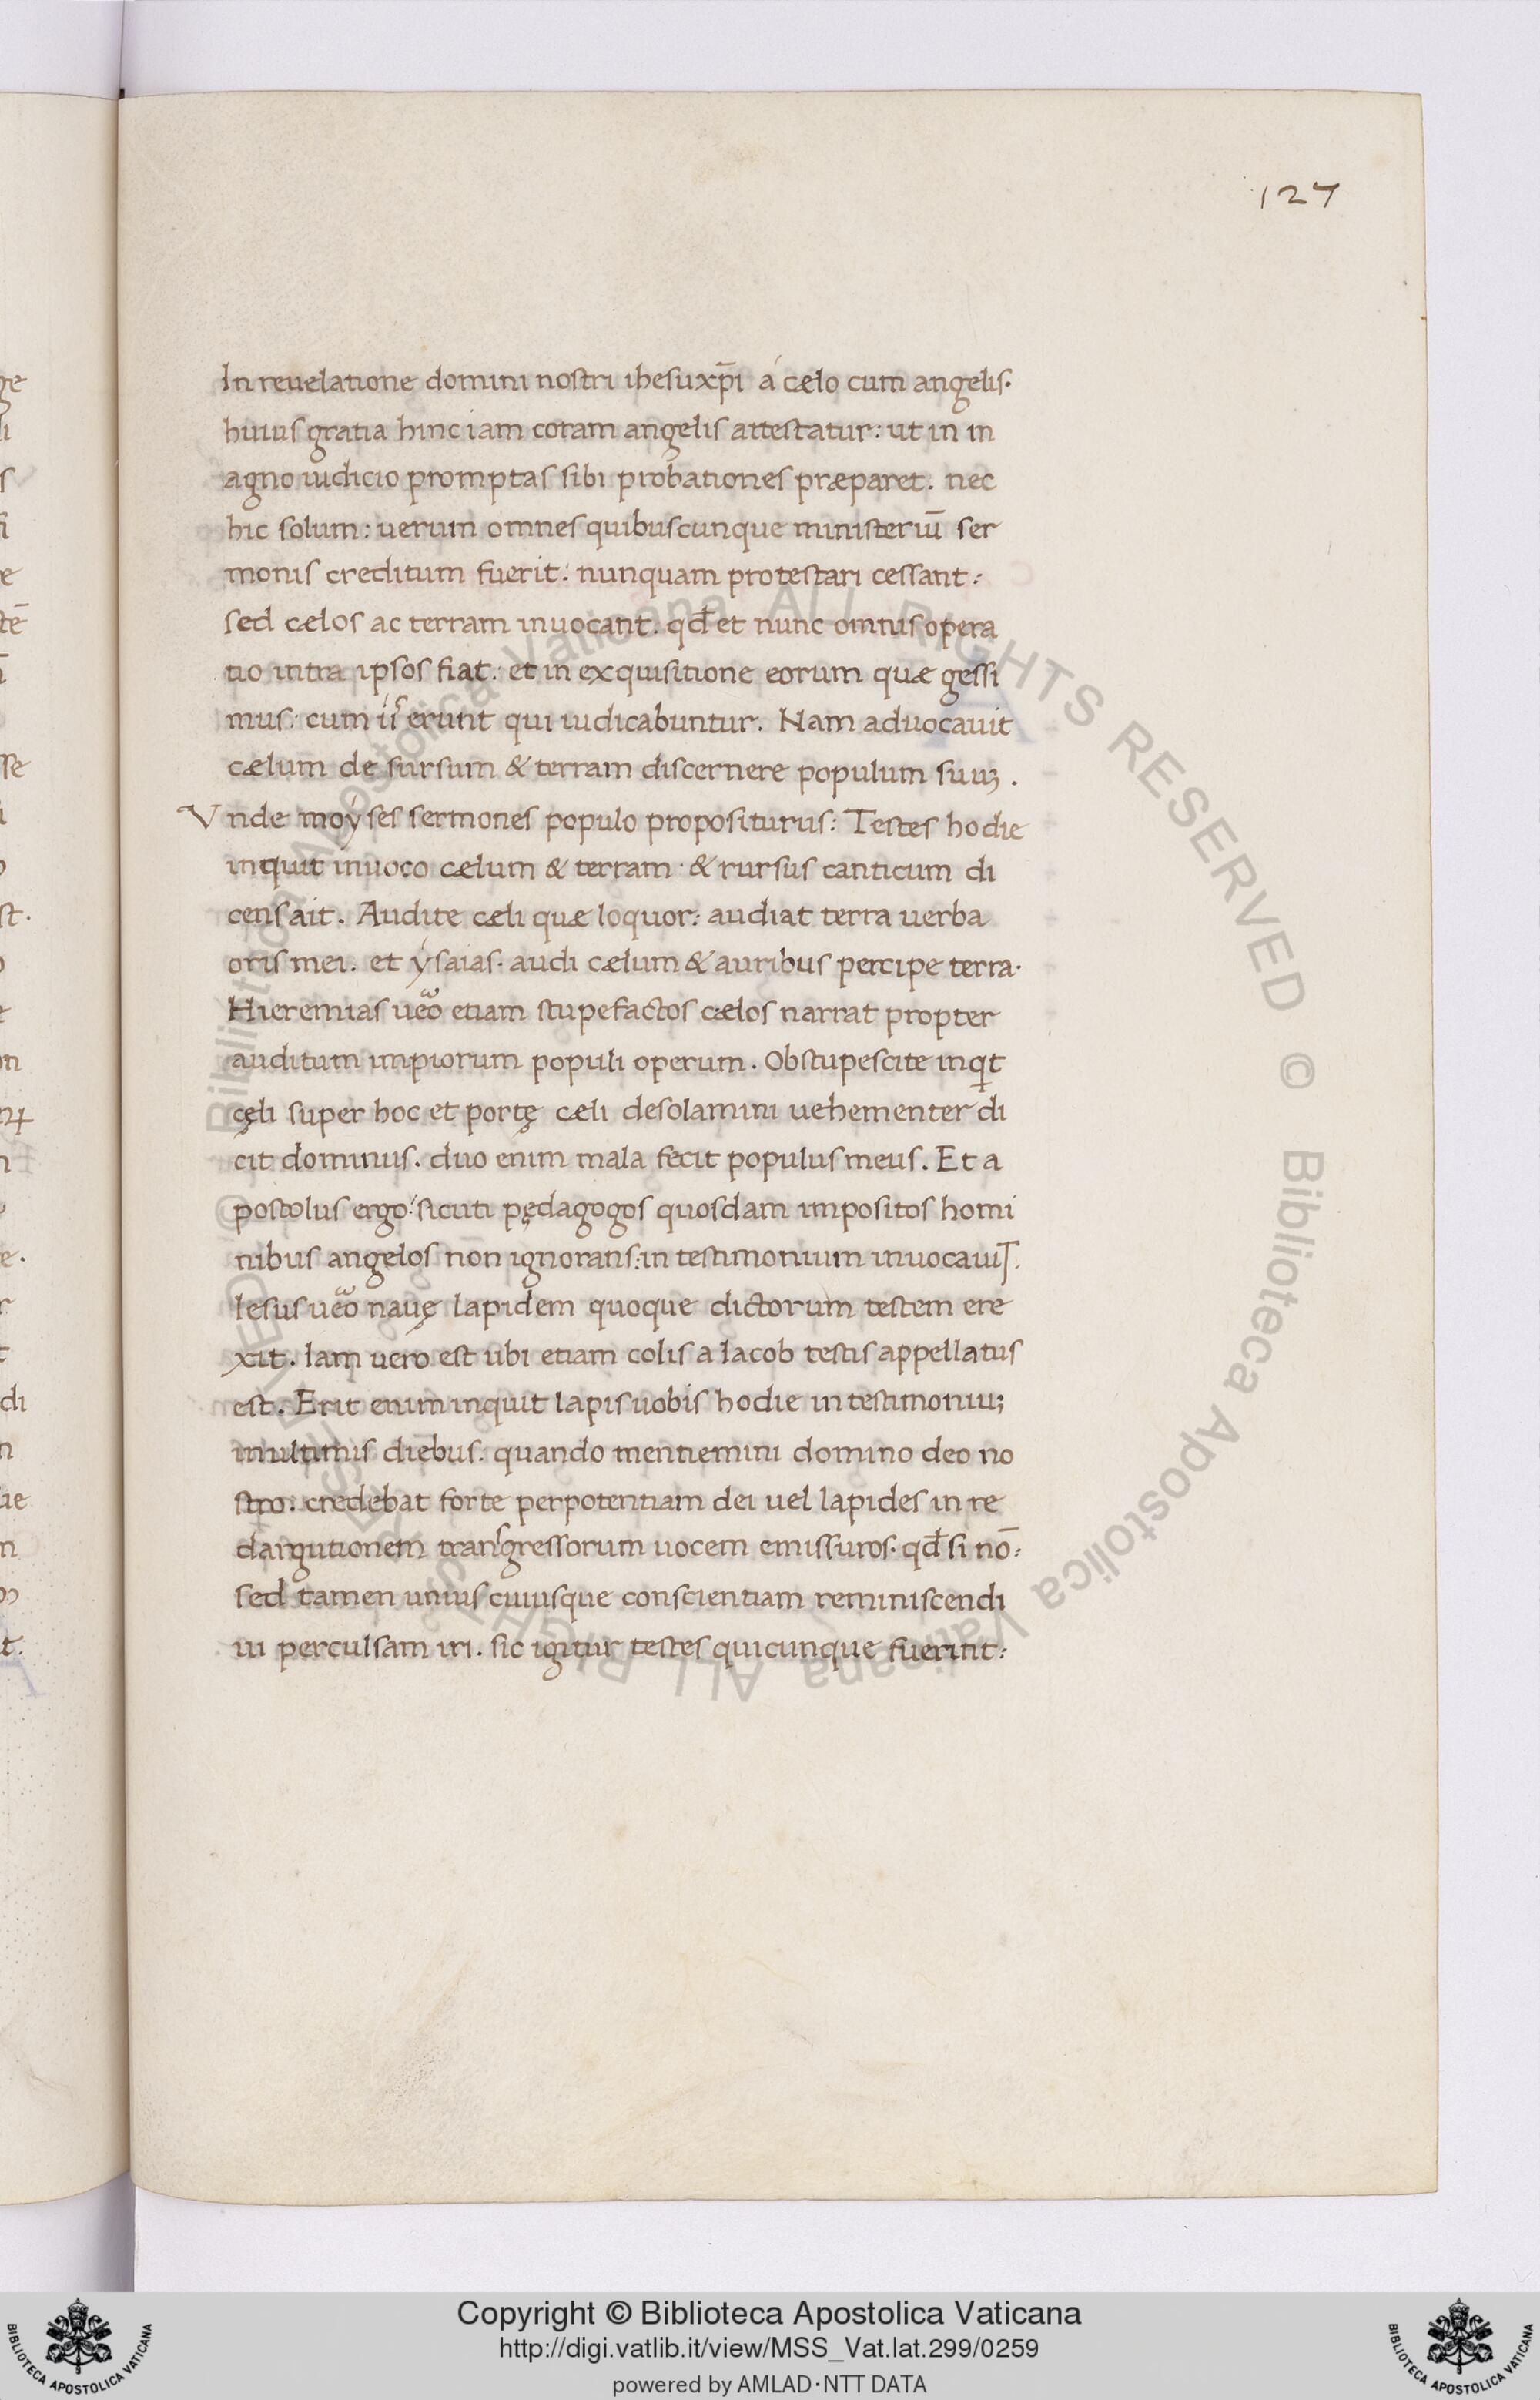 127
In reuelatione domini nostri ihesu xp̄i á cælo cum angelis.
huius gratia hinc iam coram angelis attestatur: ut in m
agno iudicio promptas sibi probationes præparet. nec
hic solum: uerum omnes quibuscunque ministeriū ser
monis creditum fuerit: nunquam protestari cessant:
sed cælos ac terram inuocant. qđ et nunc omnis opera
tio intra ipsos fiat: et in exquisitione eorum quæ gessi
mus: cum ii erunt qui iudicabuntur. Nam aduocauit
cælum de sursum & terram discernere populum suuʒ.
Vnde moyses sermones populo propositurus: Testes hodie
inquit inuoco cælum & terram · & rursus canticum di
cens ait. Audite cæli quæ loquor: audiat terra uerba
oris mei. et ysaias. audi cælum & auribus percipe terra.
Hieremias uēo etiam stupefactos cælos narrat propter
auditum impiorum populi operum. Obstupescite inqt
cęli super hoc et portę cæli desolamini uehementer di
cit dominus. duo enim mala fecit populus meus. Et a
postolus ergo: sicuti pędagogos quosdam impositos homi
nibus angelos non ignorans: in testimonium inuocauit.
Iesus uēo nauę lapidem quoque dictorum testem ere
xit. Iam uero est ubi etiam colis a Iacob testis appellatus
est. Erit enim inquit lapis uobis hodie in testimoniu;
in ultimis diebus: quando mentiemini domino deo no
stro. credebat forte per potentiam dei uel lapides in re
dargutionem transgressorum uocem emissuros. qđ si nō:
sed tamen unius cuiusque conscientiam reminiscendi
ui perculsam iri. sic igitur testes quicunque fuerint:
© Biblioteca Apostolica Vaticana ALL RIGHTS RESERVED
Copyright © Biblioteca Apostolica Vaticana
http://digi.vatlib.it/view/MSS_Vat.lat.299/0259
powered by AMLAD·NTT DATA
BIBLIOTECA APOSTOLICA VATICANA
BIBLIOTECA APOSTOLICA VATICANA